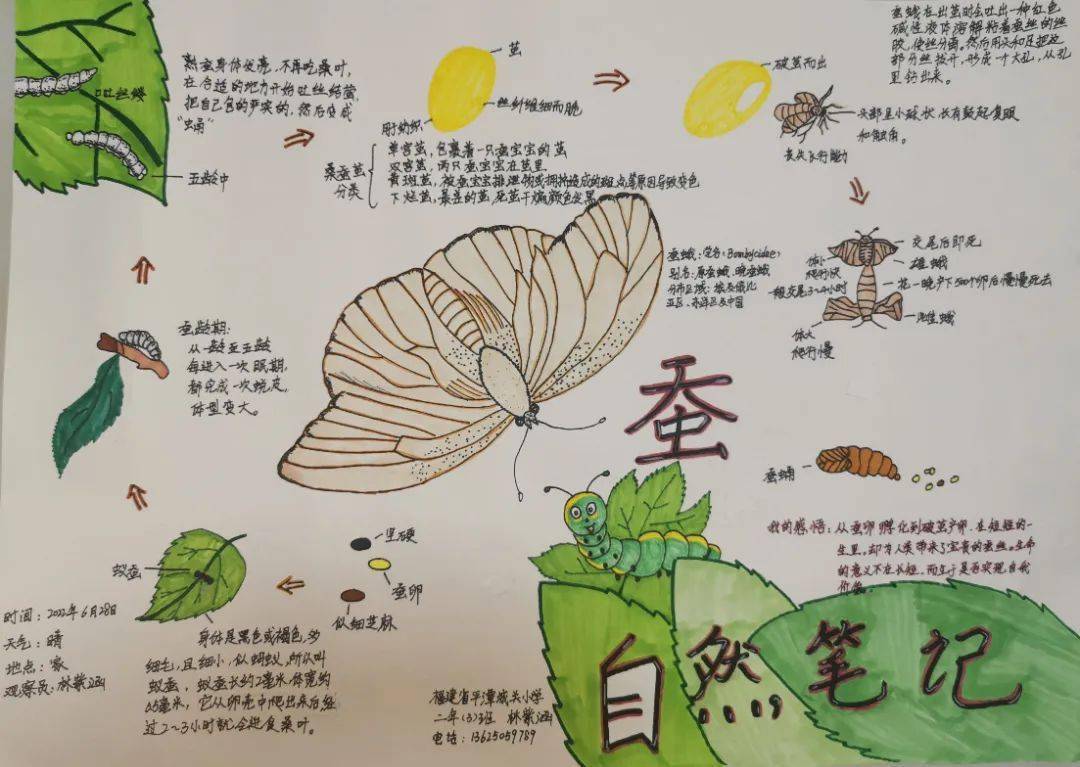 熟蚕身体发亮，不再吃桑叶，
在合适的地方开始吐丝结茧，
把自己包的严实的，然后变成
“蛹”
吐丝嘴
五龄中
茧
丝纤维细而脆
用纺织
桑蚕茧
分类
单宫茧，包裹着一只蚕宝宝的茧
双宫茧，两只蚕宝宝在茧里
黄斑茧，被蚕宝宝排泄物或拥挤造成的斑点等原因导致变色
下烂茧，最差的茧，死茧干瘪颜色发黑
破茧而出
头部呈小球状，长有鼓起复眼
和触角。
丧失飞行能力
蚕蛾在出茧时会吐出一种红色
碱性液体溶解粘着蚕丝的丝
胶，使丝分离。然后用头和足把这
部分丝拨开，形成一个大孔，从孔
里钻出来。
蚕蛾：学名：(Bombycidae)
别名：原蚕蛾、晚蚕蛾
亚区、东洋区及中国
交尾后即死
雄蛾
体小
爬行快
一般交尾3~4小时
花一晚产下500个卵后慢慢死去
雌蛾
体大
爬行慢
蚕龄期：
从一龄至五龄
每进入一次眠期，
都完成一次蜕皮，
体型变大。
蚕
蚕蛹
我的感悟：从蚕卵孵化到破茧产卵，在短短的一
生里，却为人类带来了宝贵的蚕丝。生命
的意义不在长短，而在于是否实现自我
价值。
蚁蚕
一坚硬
蚕卵
似细芝麻
时间：2022年6月28日
天气：晴
地点：家
观察员：林紫涵
身体是黑色或褐色，多
细毛，且细小，似蚂蚁，所以叫
蚁蚕，蚁蚕长约2毫米，体宽约
0.5毫米，它从卵壳中爬出来后经
过2~3小时就会进食桑叶。
福建省平潭城关小学
二年（3）班 林紫涵
电话：13625059789
自然笔记